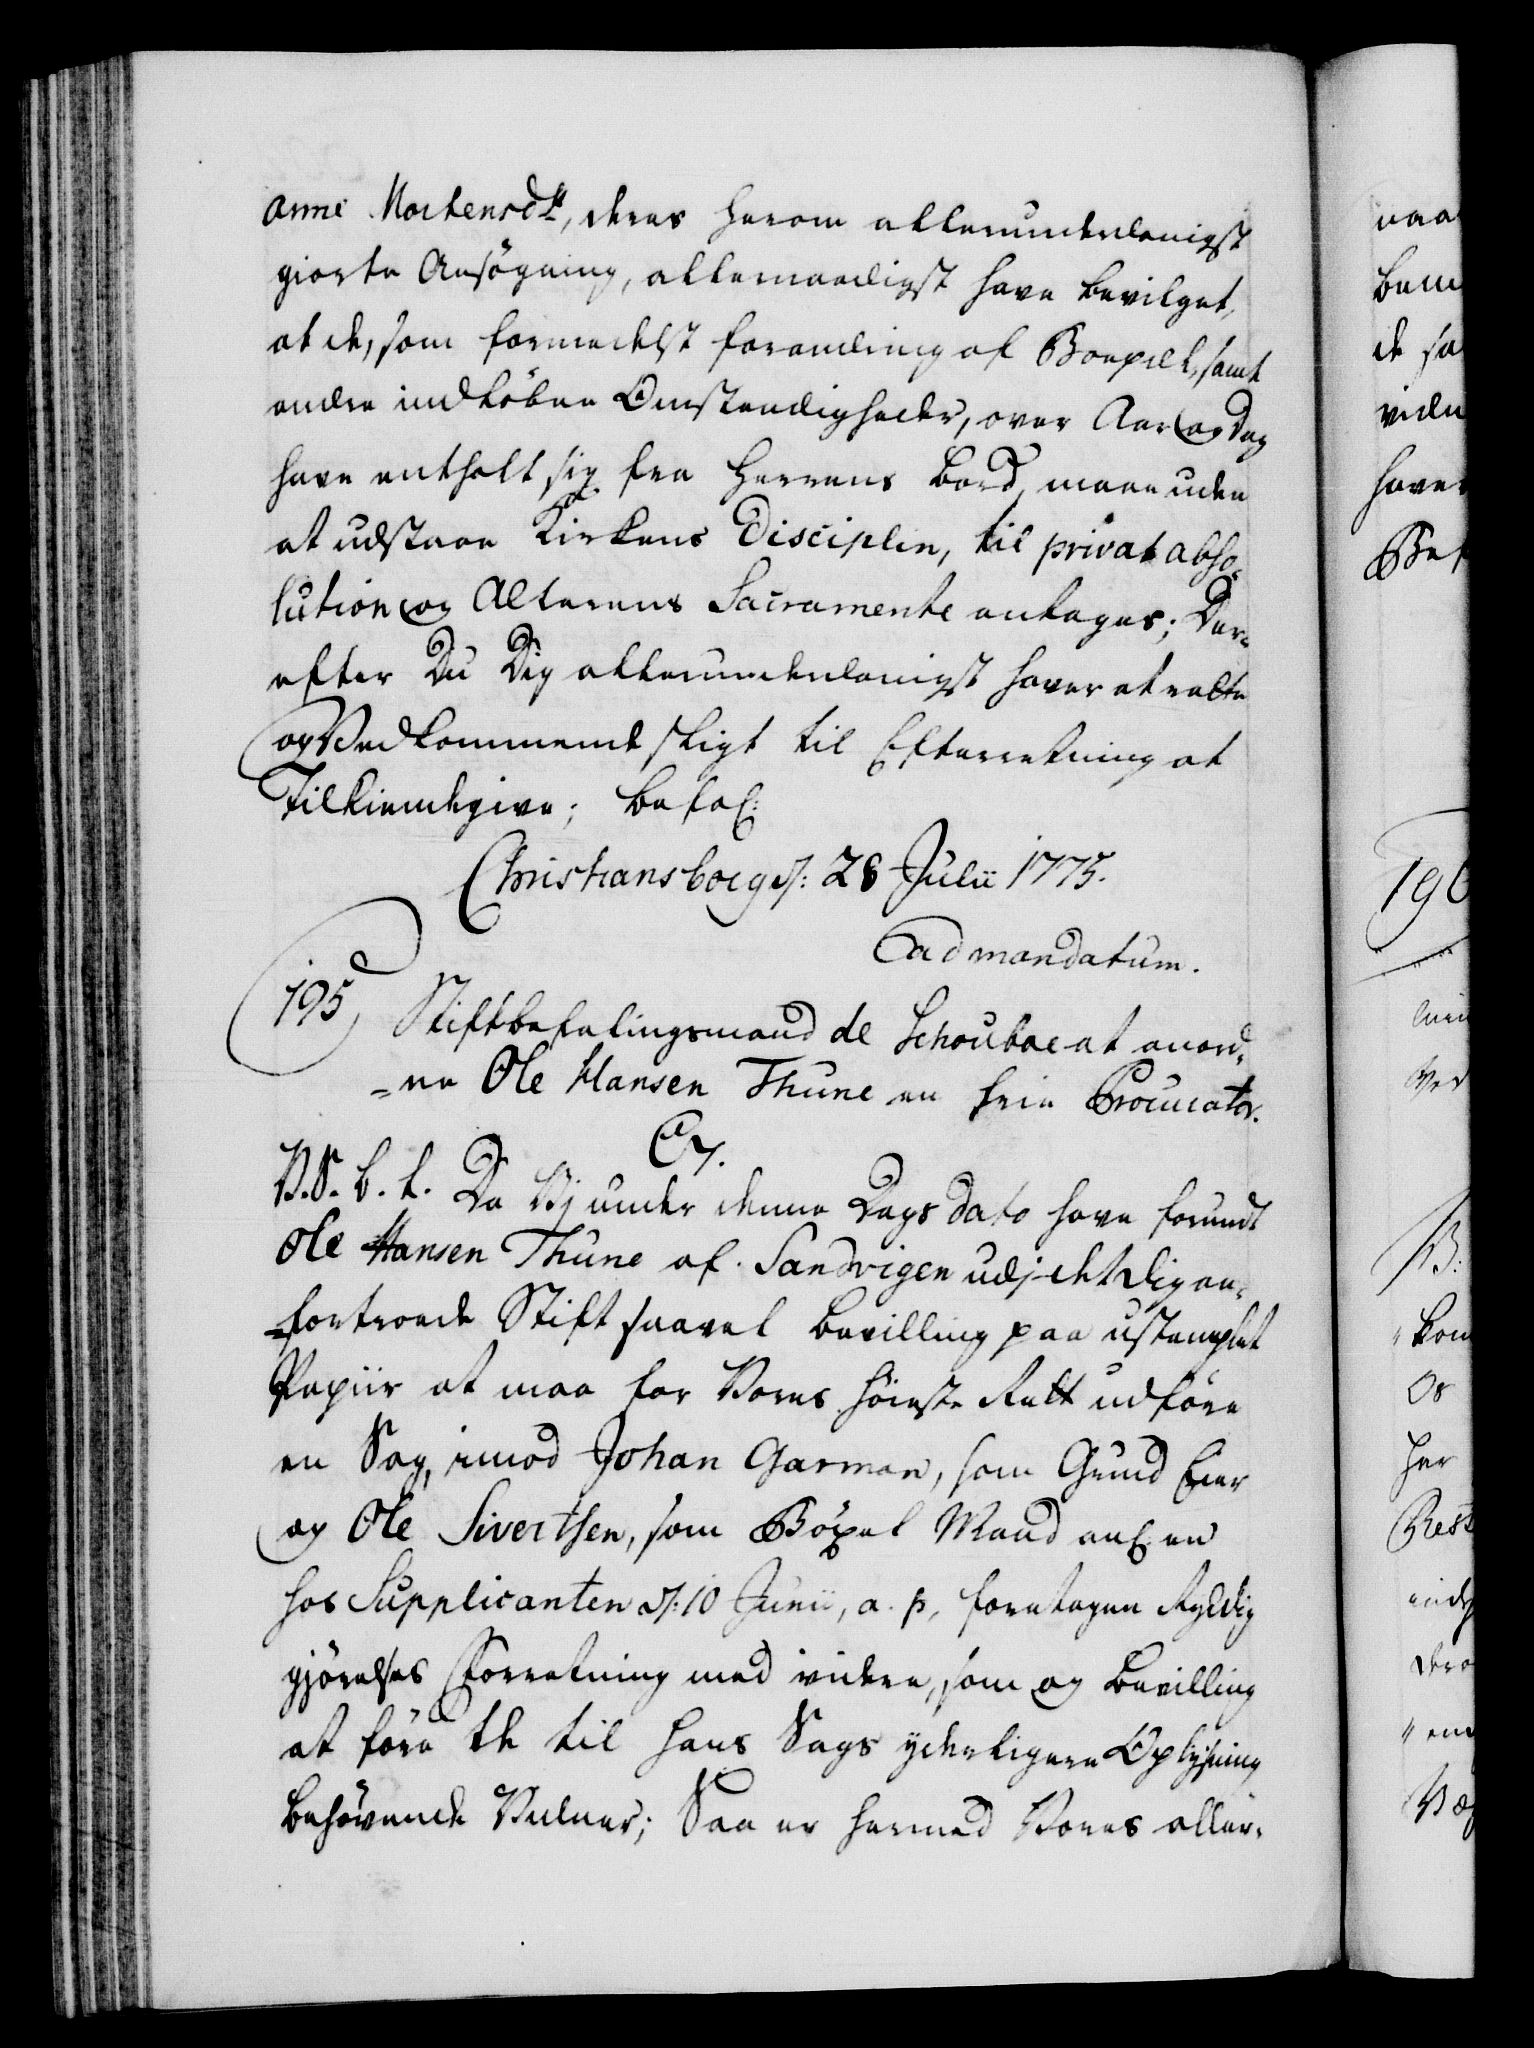 Anne Mortensdtr, deres herom allerunderdanigst
giorte Ansögning, allernaadigst have bevilget,
at de, som formedelst forandring af Boepæl, samt
andre indløbne Omstændigheder, over Aar og Dag
have entholt sig fra Herrens Bord, maae uden
at udstaae Kirkens Disciplin, til privat abso-
lution og Alterens Sacramente antages; Der-
efter Du Dig allerunderdanigst haver at rette
og Vedkommende sligt til Efterretning at
Tilkiendegive; Befal:
Christiansborg d: 28 Julii 1775.
ad mandatum.
195, Stiftbefalingsmand de Schouboe at anord-
=ne Ole Hansen Thune en frie Procurator.
C7.
V. S. b. t. Da Vi under denne Dags Dato have forundt
Ole Hansen Thune af Sandvigen udj det dig an-
=fortroede Stift saavel Bevilling paa ustemplet
Papiir at maa for Vores Höieste Rett udföre
en Sag, imod Johan Garman, som Grund Eier
og Ole Sivertsen, som Böxel Mand anl: en
hos Supplicanten d: 10 Junii, a. p. foretagen Ryddig
gjörelses Forretning med videre, som og Bevilling
at före de til hans Sags yderligere Oplysning
behövende Vidner; Saa er hermed Vores aller-